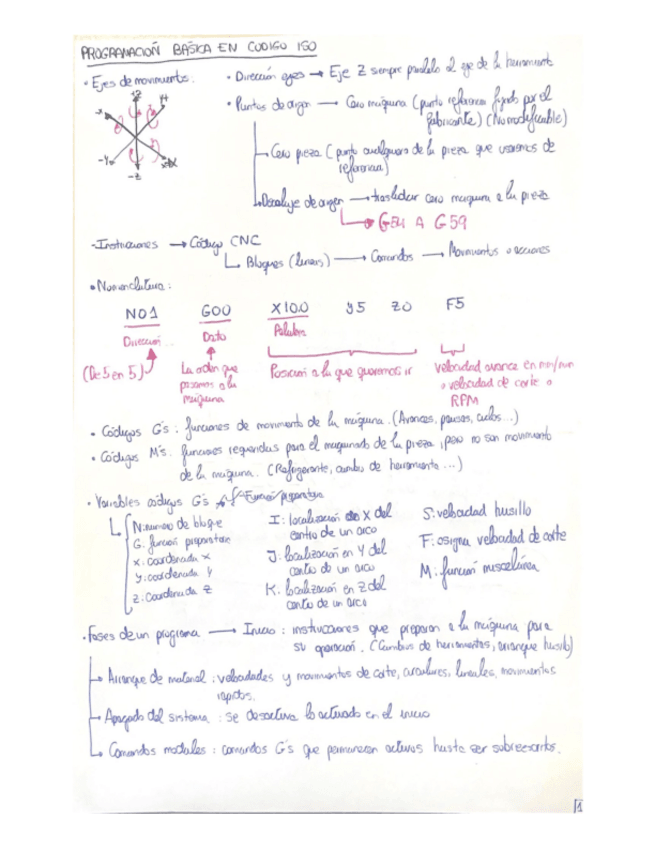 PROGRAMACIÓN BÁSICA EN CODIGO ISO
• Ejes de movimiento.
+Z
Y+
-X
-Y
+X
-Z
• Dirección ejes → Eje Z siempre paralelo al eje de la herramienta
• Puntos de origen → Cero máquina (punto referencia fijado por el
fabricante) (No modificable)
Cero pieza (punto cualquiera de la pieza que usaremos de
referencia)
Decalaje de origen → trasladar cero maquina a la pieza
G54 A G59
- Instrucciones → Código CNC
Bloques (lineas) → Comandos → Movimientos o acciones
• Nomenclatura:
N01 G00 X100 Y5 Z0 F5
Dirección Dato Palabra
(De 5 en 5)
La orden que
pasamos a la
máquina
Posición a la que queremos ir
velocidad avance en mm/min
o velocidad de corte o
RPM
• Códigos G's: funciones de movimiento de la máquina. (Avances, pausas, ciclos...)
• Códigos M's: funciones requeridas para el maquinado de la pieza, pero no son movimiento
de la maquina. (Refrigerante, cambio de herramienta...)
• Variables códigos G's
N: numero de bloque
G: función preparatoria
X: coordenada X
Y: coordenada Y
Z: Coordenada Z
I: localización X del
centro de un arco
J: localización en Y del
centro de un arco
K: localización en Z del
centro de un arco
S: velocidad husillo
F: asigna velocidad de corte
M: función miscelánea
• Fases de un programa → Inicio: instrucciones que preparan a la maquina para
su operación. (Cambios de herramientas, arranque husillo)
Arranque de material: velocidades y movimientos de corte, circulares, lineales, movimientos
rapidos.
Apagado del sistema: se desactiva lo activado en el inicio
Comandos modales: comandos G's que permanecen activos hasta ser sobreescritos.
1